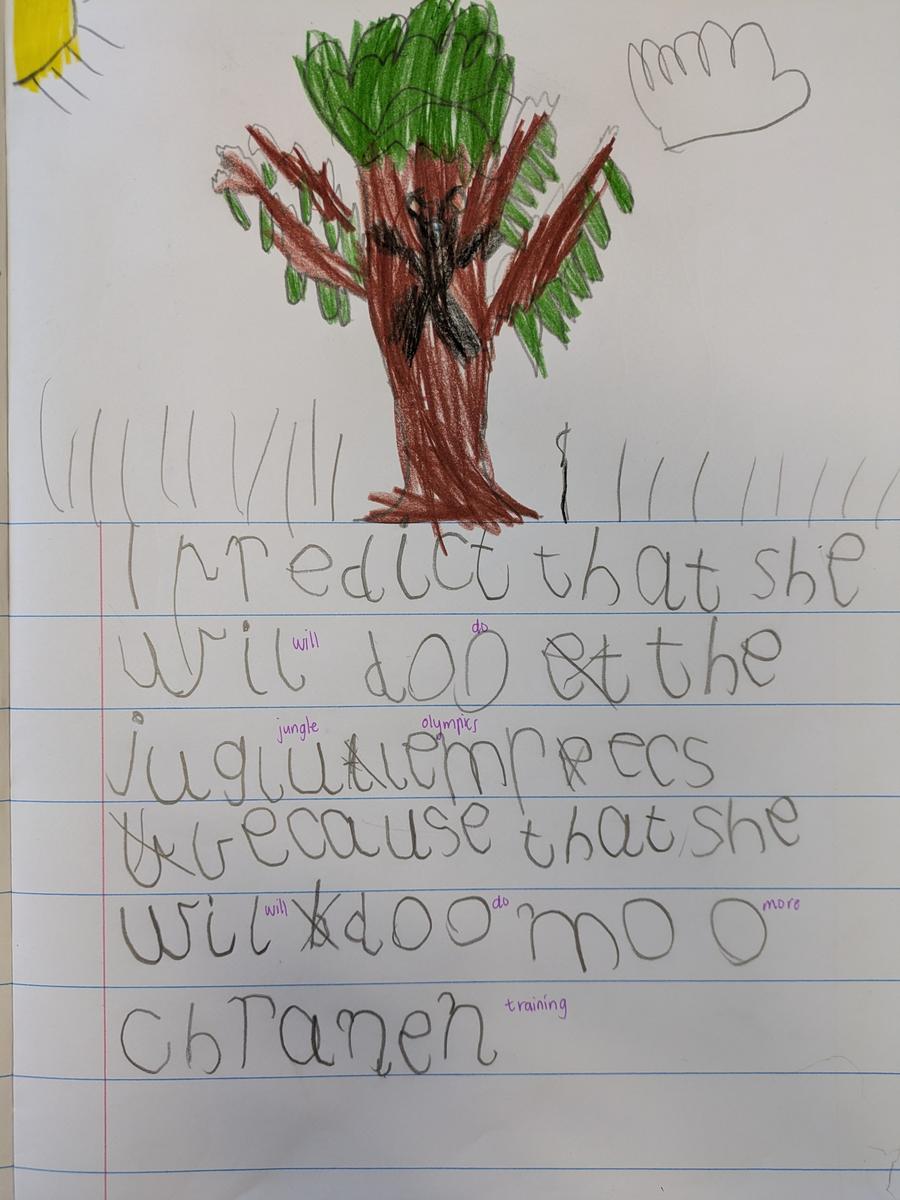 I predict that she
wil will doo do the
jugluuemprecs jungle olympics
because that she
wil will doo do moo more
chranen training